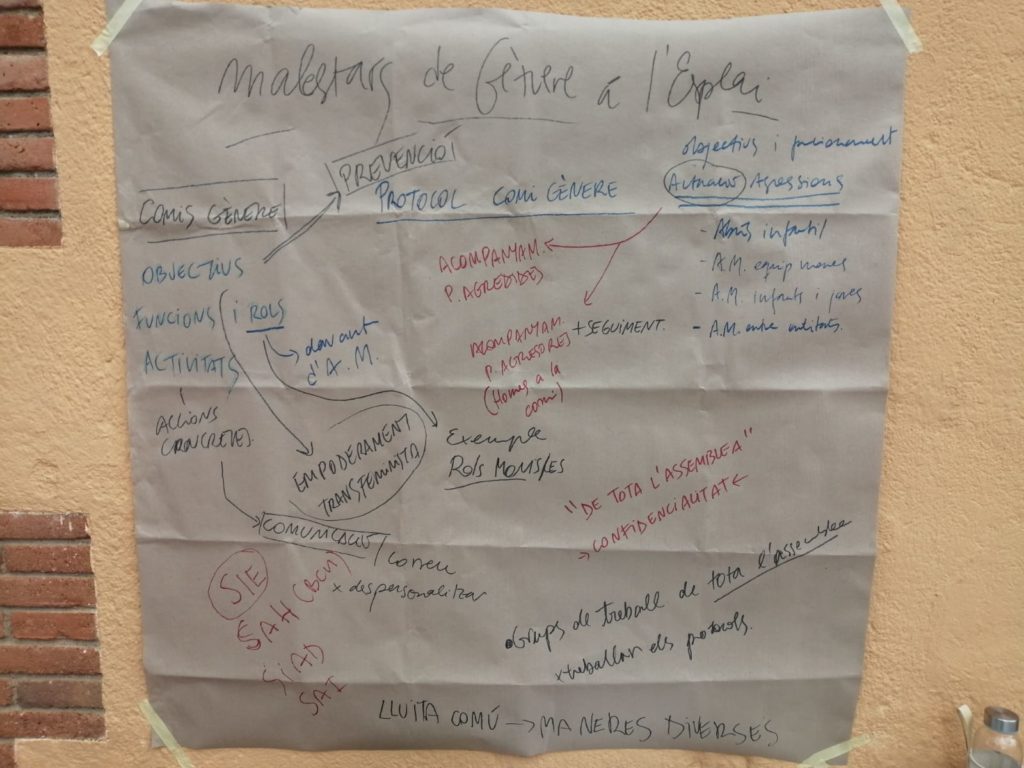 malestars de Gènere a l'Esplai
PREVENCIÓ
COMIS GÈNERE
OBJECTIUS
FUNCIONS i ROLS
ACTIVITATS
ACCIONS
CONCRETES
davant
d'A.M.
EMPODERAMENT
TRANSFEMINISTA
Exemple
Rols
COMUNICACIÓ
Correu
x despersonalitzar
SIE
SAH (BCN)
SIAD
SAI
PROTOCOL COMI GÈNERE
ACOMPANYAM.
P. AGREDIDES
ACOMPANYAM.
P. AGRESORES
(Homes a la
comi)
+ SEGUIMENT.
objectius i funcionament
Actuació Agressions
- Abús infantil
- A.M. equip mones
- A.M. infants i joves
- A.M. entre entitats.
"DE TOTA L'ASSEMBLEA"
→ CONFIDENCIALITAT ←
• Grups de treball de tota l'assemblea
x treballar els protocols.
LLUITA COMÚ → MANERES DIVERSES